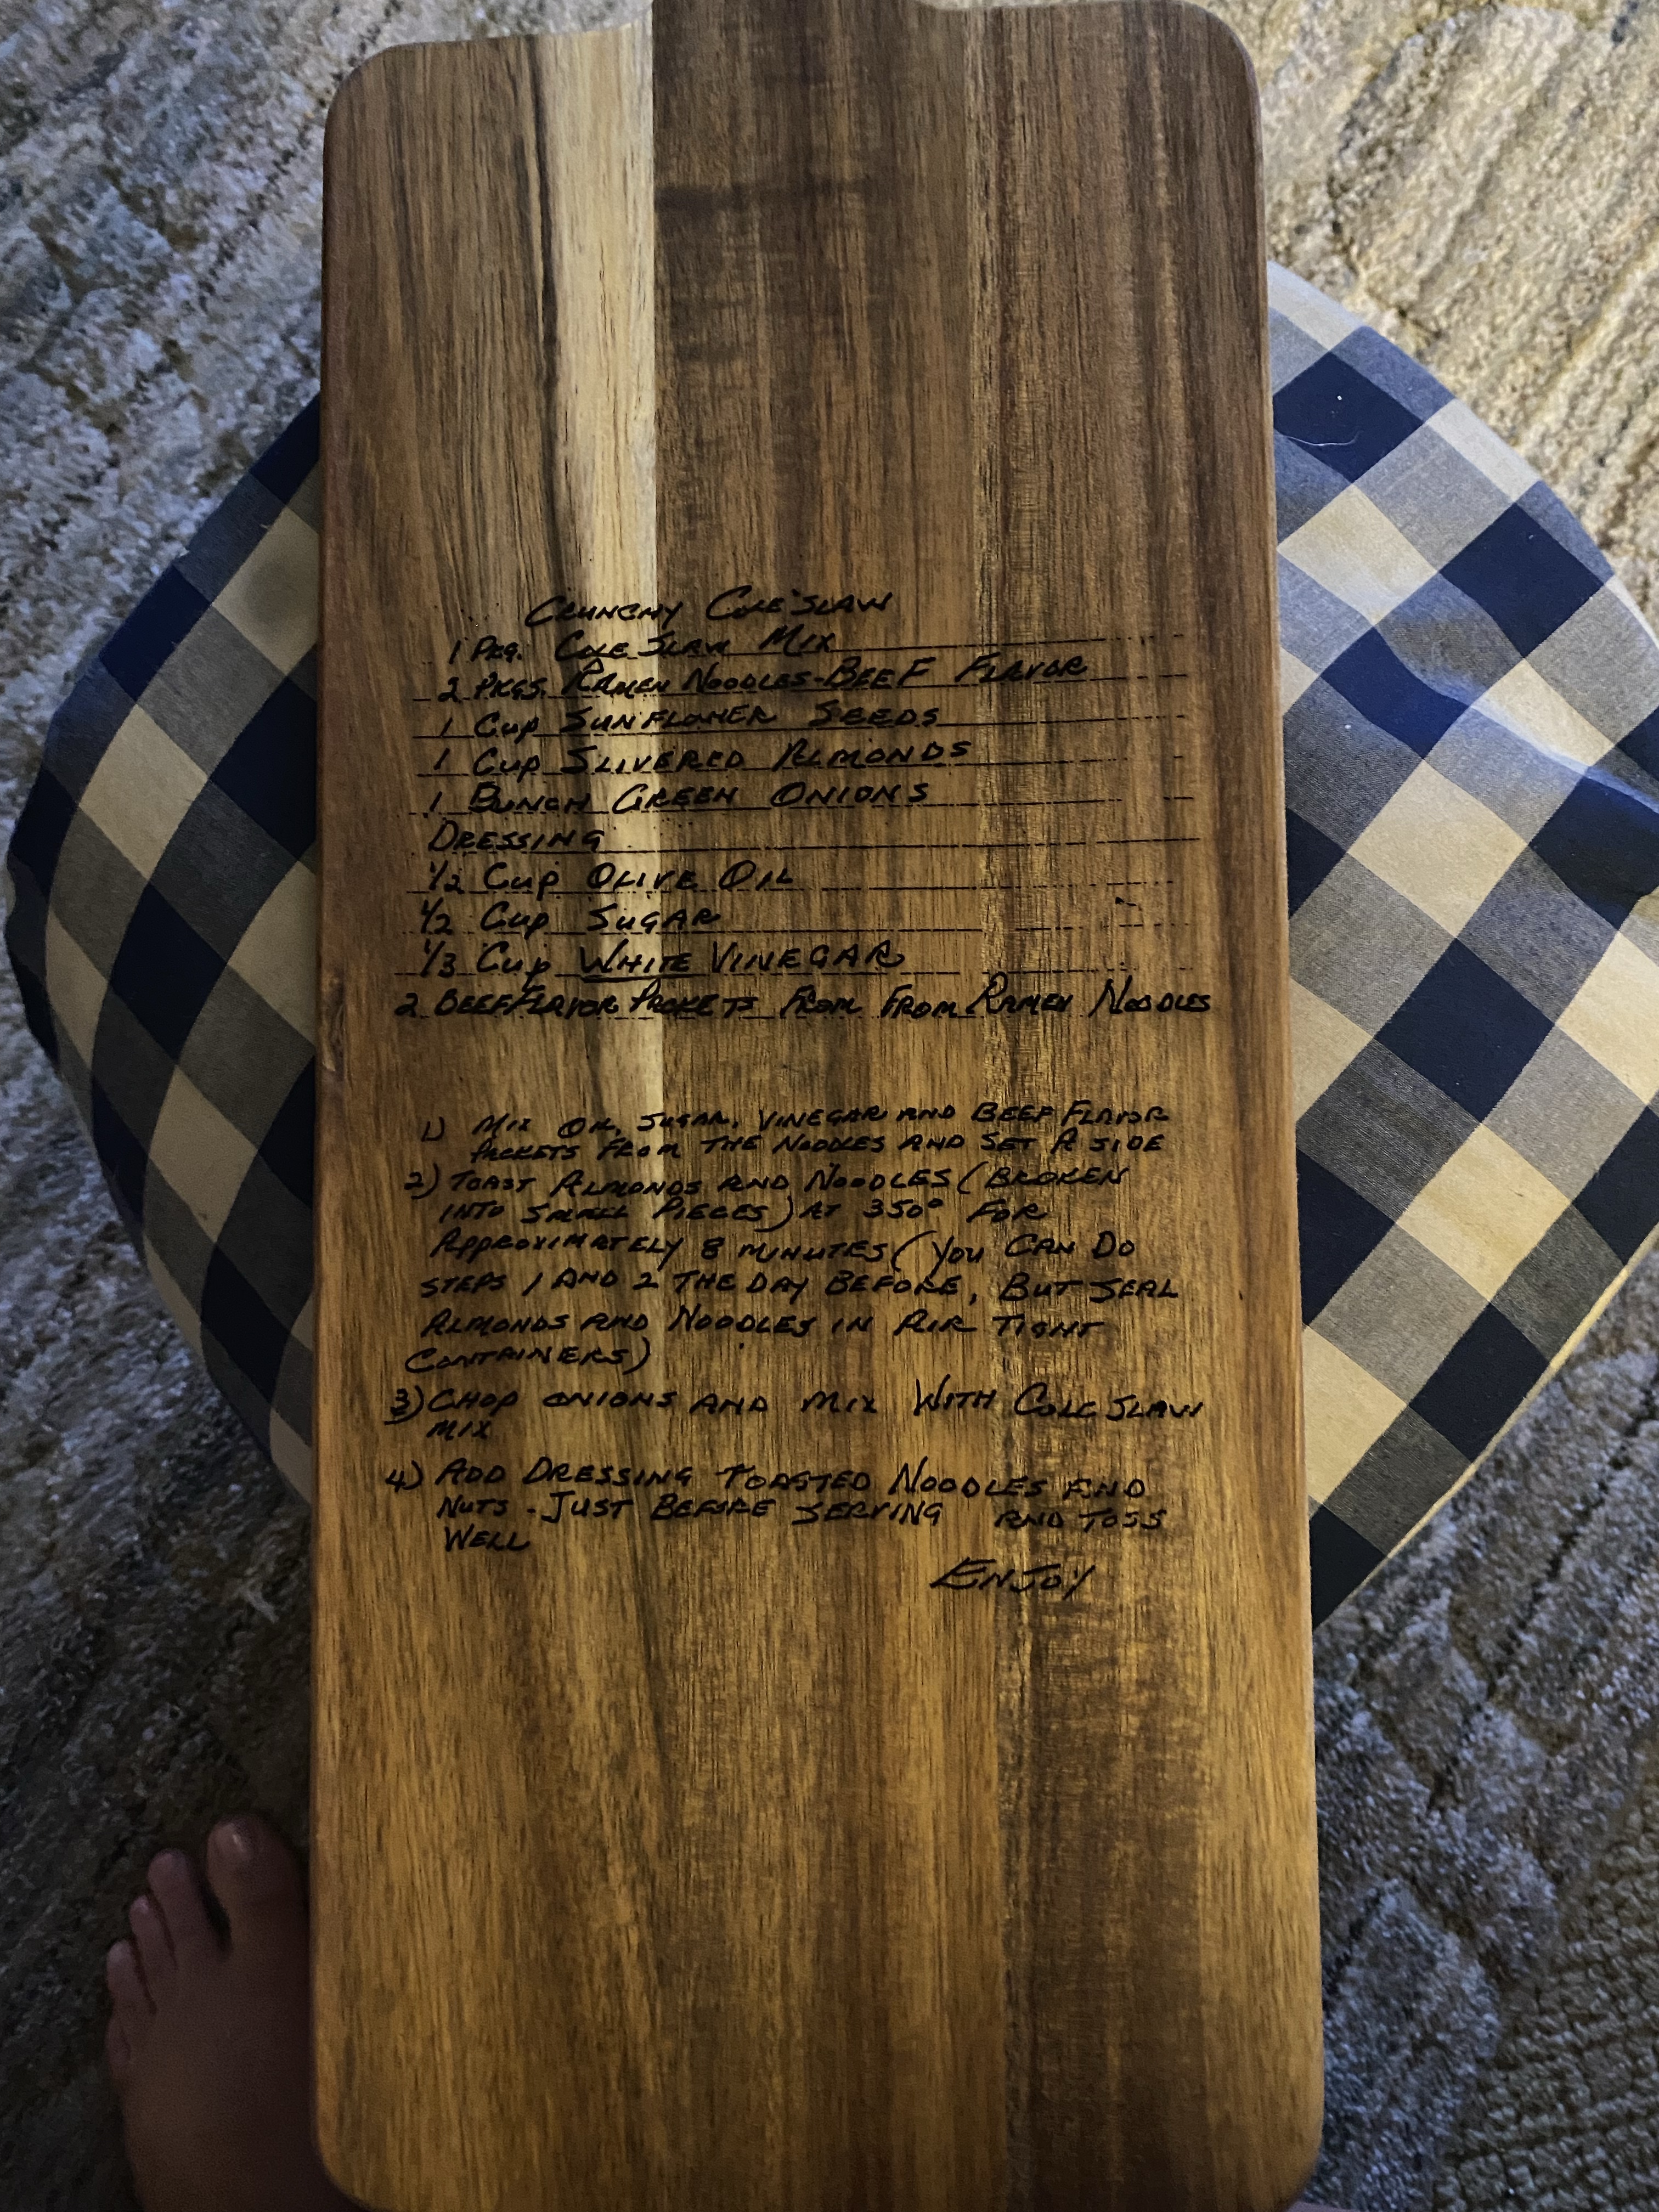 CRUNCHY COLE SLAW
1 PKG. COLE SLAW MIX
2 PKGS. RAMEN NOODLES-BEEF FLAVOR
1 CUP SUNFLOWER SEEDS
1 CUP SLIVERED ALMONDS
1 BUNCH GREEN ONIONS
DRESSING
1/2 CUP OLIVE OIL
1/2 CUP SUGAR
1/3 CUP WHITE VINEGAR
2 BEEF FLAVOR PACKETS FROM FROM RAMEN NOODLES
1) MIX OIL, SUGAR, VINEGAR AND BEEF FLAVOR
PACKETS FROM THE NOODLES AND SET A SIDE
2) TOAST ALMONDS AND NOODLES (BROKEN
INTO SMALL PIECES) AT 350° FOR
APPROXIMATELY 8 MINUTES (YOU CAN DO
STEPS 1 AND 2 THE DAY BEFORE, BUT SEAL
ALMONDS AND NOODLES IN AIR TIGHT
CONTAINERS)
3) CHOP ONIONS AND MIX WITH COLE SLAW
MIX
4) ADD DRESSING TOASTED NOODLES AND
NUTS - JUST BEFORE SERVING AND TOSS
WELL
ENJOY